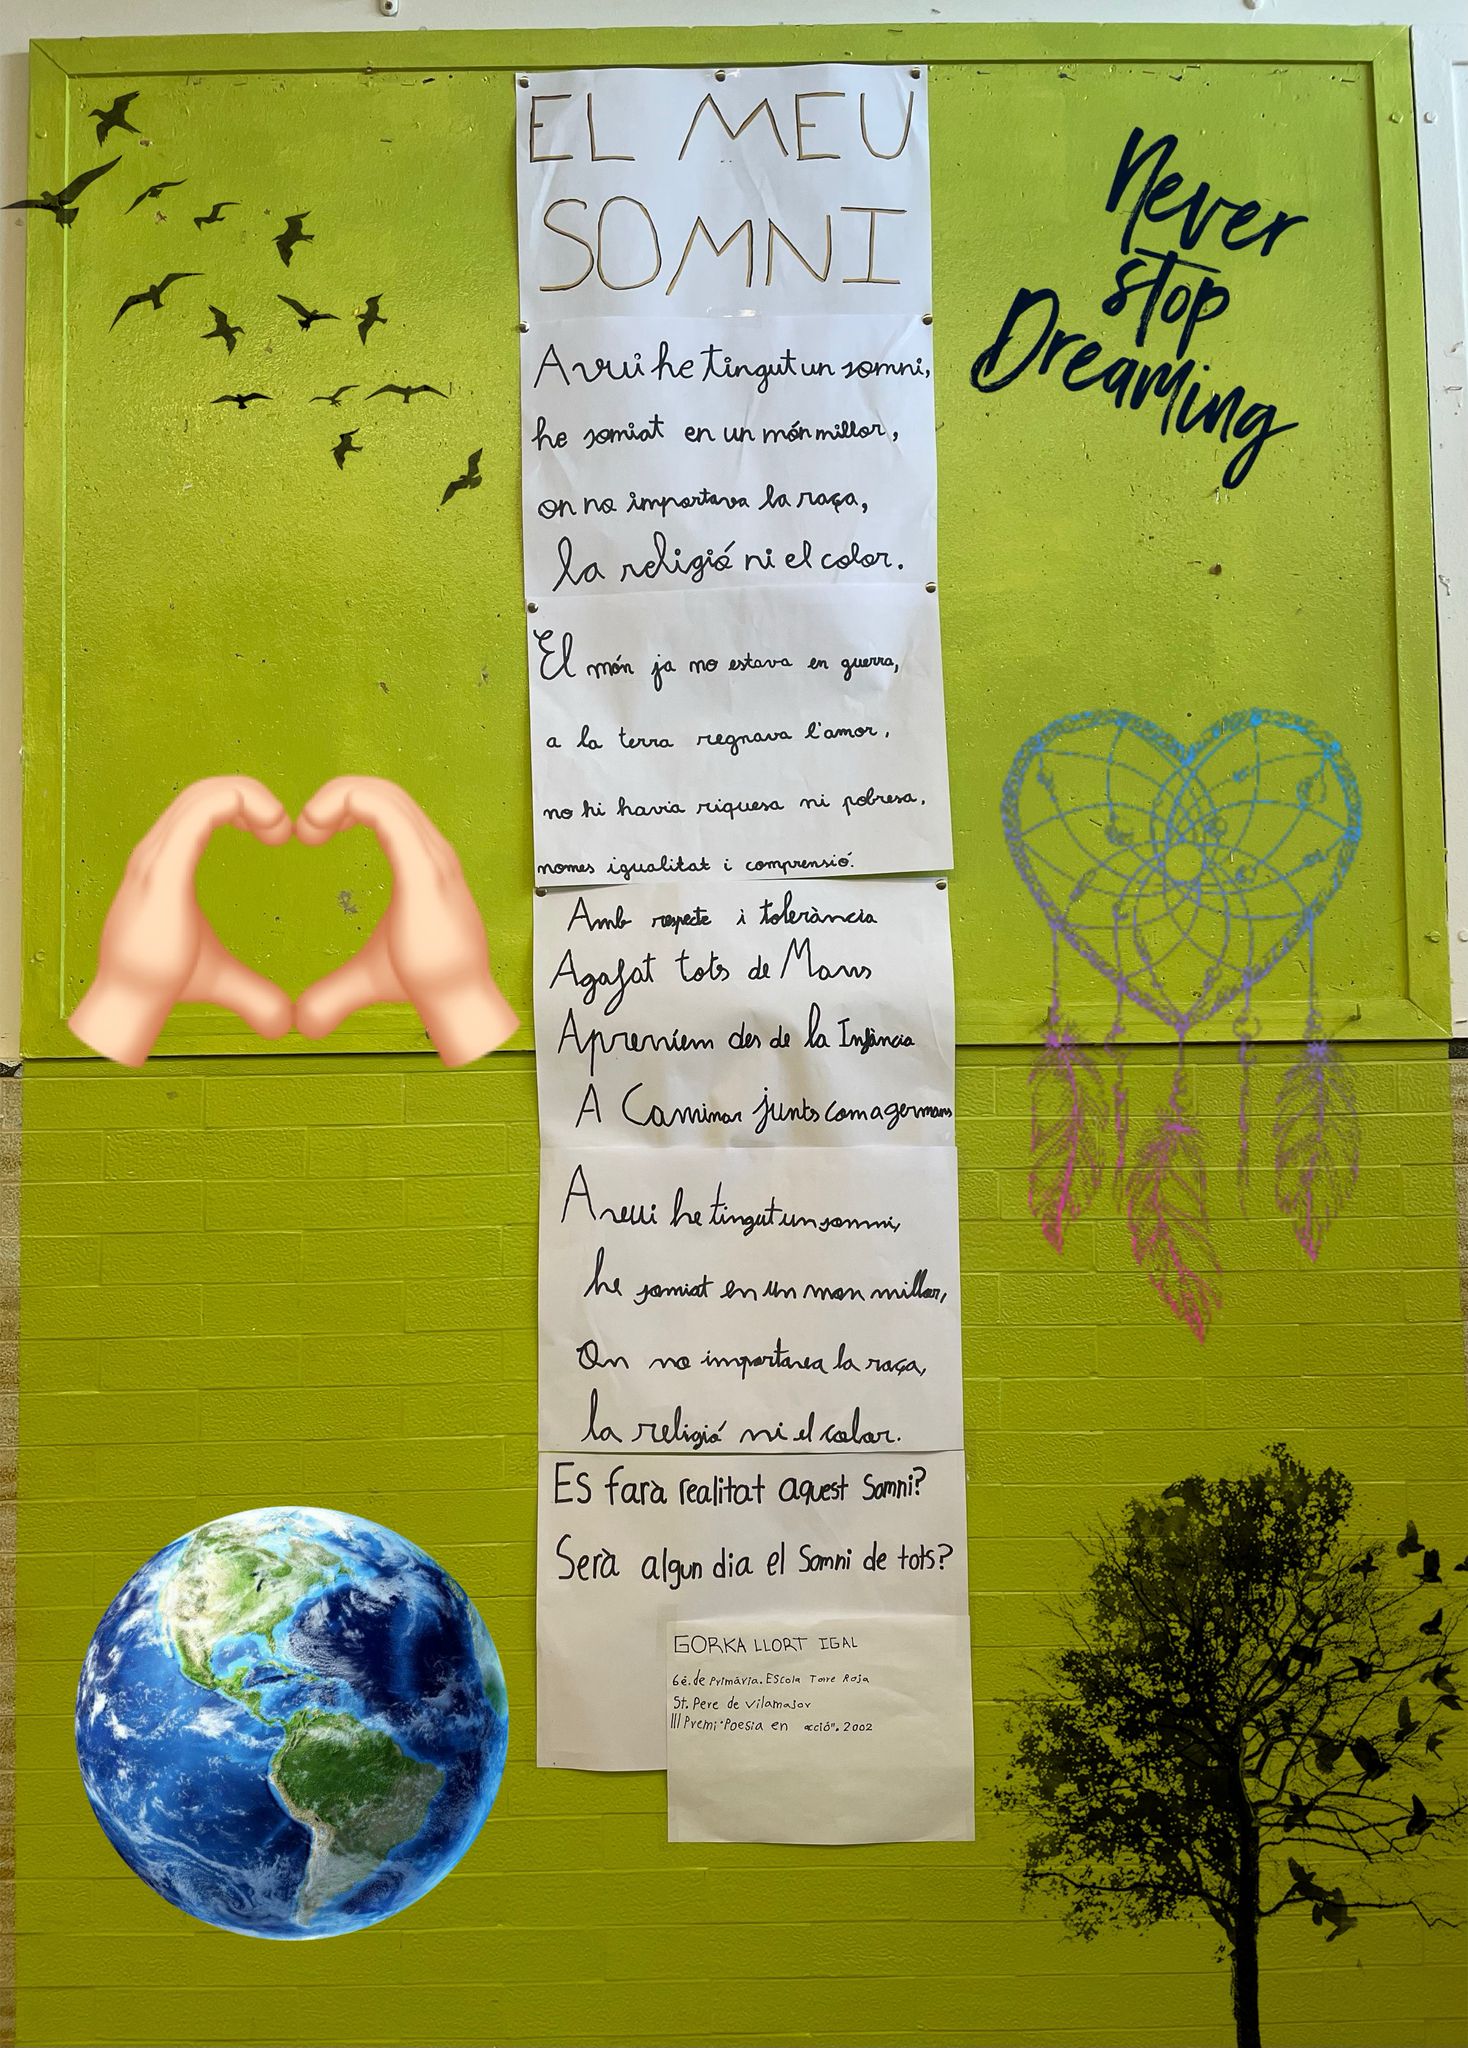 EL MEU
SOMNI
Avui he tingut un somni,
he somiat en un món millor,
on no importava la raça,
la religió ni el color.
El món ja no estava en guerra,
a la terra regnava l'amor,
no hi havia riquesa ni pobresa,
nomes igualitat i comprensió.
Amb respecte i tolerància
Agafat tots de Mans
Apreníem des de la Infància
A Caminar junts com a germans
Avui he tingut un somni,
he somiat en un mon millor,
On no importava la raça,
la religió ni el color.
Es farà realitat aquest Somni?
Serà algun dia el Somni de tots?
GORKA LLORT IGAL
6é. de Primària. Escola Torre Roja
St. Pere de Vilamajor
III Premi "Poesia en acció". 2002
Never
stop
Dreaming